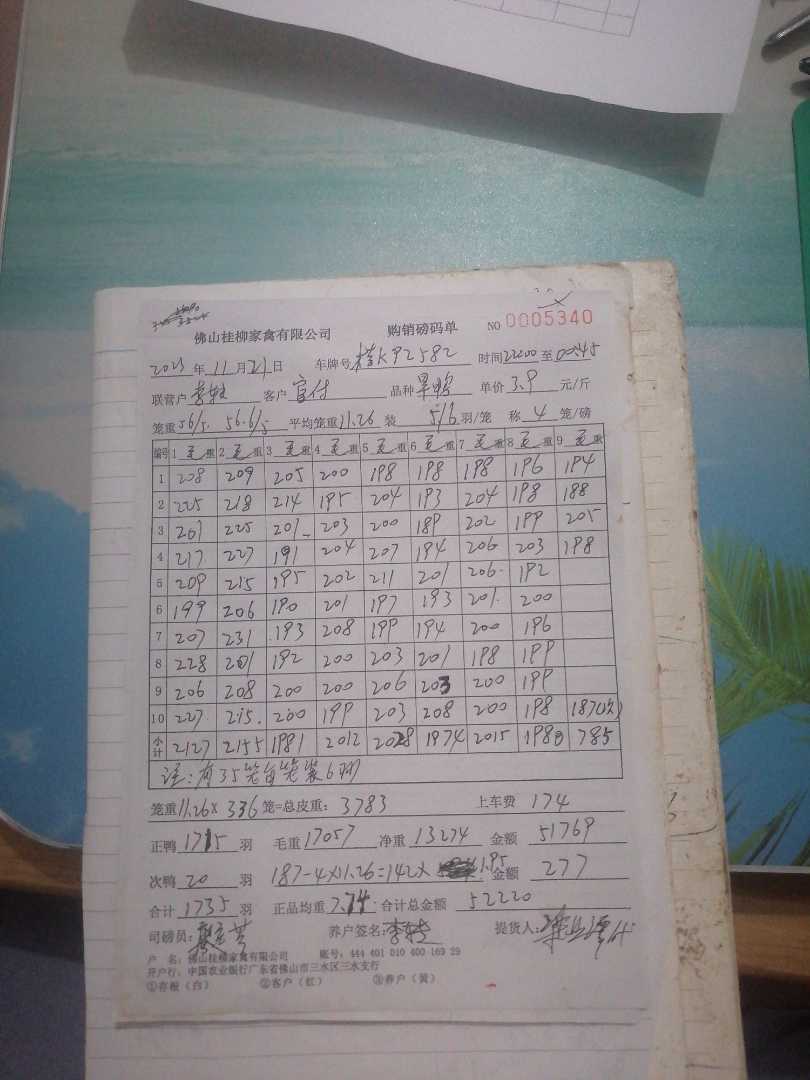 佛山桂柳家禽有限公司 购销磅码单 NO 0005340
2023年11月21日 车牌号桂KP2582 时间22:00至00:45
联营户 客户官付 品种旱鸭 单价3.9元/斤
笼重56/5 56.6/5 平均笼重11.26 装5/6羽/笼 称4笼/磅
编号 1毛重 2毛重 3毛重 4毛重 5毛重 6毛重 7毛重 8毛重 9毛重
1 208 209 205 200 198 198 198 196 194
2 225 218 214 195 204 193 204 198 188
3 207 225 201 203 200 189 202 199 205
4 217 227 191 204 207 194 206 203 198
5 209 215 195 202 211 201 206 192
6 199 206 190 201 197 193 201 200
7 207 231 193 208 199 194 200 196
8 228 201 192 200 203 201 198 199
9 206 208 200 200 206 203 200 199
10 227 215 200 199 203 208 200 198 187(次)
小计 2127 2155 1981 2012 2028 1974 2015 1980 785
注:有35笼每笼装6羽
笼重11.26×336笼=总皮重:3783 上车费174
正鸭1715羽 毛重17057 净重13274 金额51769
次鸭20羽 187-4×11.26=142× 1.95 金额277
合计1735羽 正品均重7.74 合计总金额52220
司磅员: 养户签名: 提货人:
户 名:佛山桂柳家禽有限公司 账号:444 401 010 400 169 29
开户行:中国农业银行广东省佛山市三水区三水支行
①存根(白) ②客户(红) ③养户(黄)